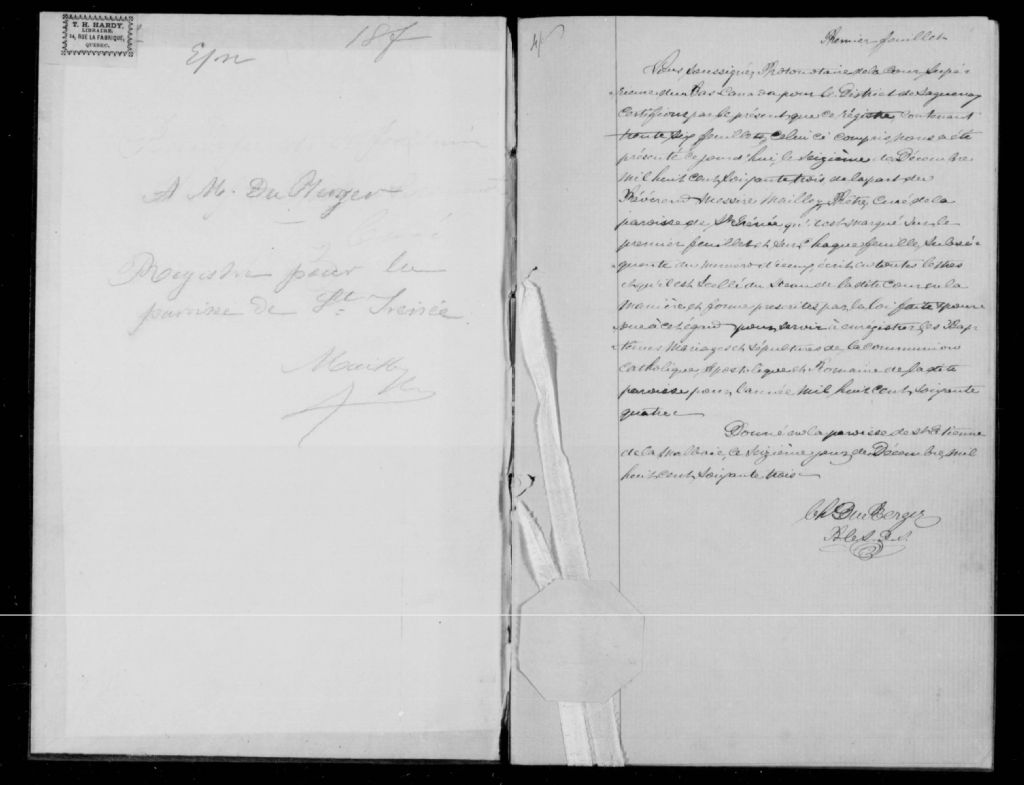 T. H. HARDY,
LIBRAIRE,
14, RUE LA FABRIQUE,
QUEBEC.
187
A Mr. DuBerger
Registre pour la
paroisse de St. Irénée
Premier feuillet
Nous, Soussigné, Protonotaire de la Cour Supé-
rieure du Bas Canada pour le District de Saguenay
Certifions par le présent que ce régistre contenant
trente six feuillets, celui ci compris, nous a été
présenté ce jourd'hui, le Seizième de Décembre
Mil huit cent Soixante trois de la part du
Révérend Messire Mailley, Prêtre, Curé de la
paroisse de St. Irénée qu'il est Marqué Sur le
premier feuillet et Sur Chaque feuillet, Subsé-
quent du numero écrit en toutes lettres
et qu'il est Scellé du Sceau de la dite Cour en la
Manière et forme prescrites par la loi faite et pour
vue à cet égard pour servir à enregistrer les Bap-
tèmes Mariages et Sépultures de la Communion
Catholique, Apostolique et Romaine de la dite
paroisse pour l'année Mil huit cent Soixante
quatre
Donné en la paroisse de St. Etienne
de la Malbaie, ce Seizième jour de Décembre, Mil
huit cent Soixante trois
Ch. DuBerger
P.C.S.D.S.